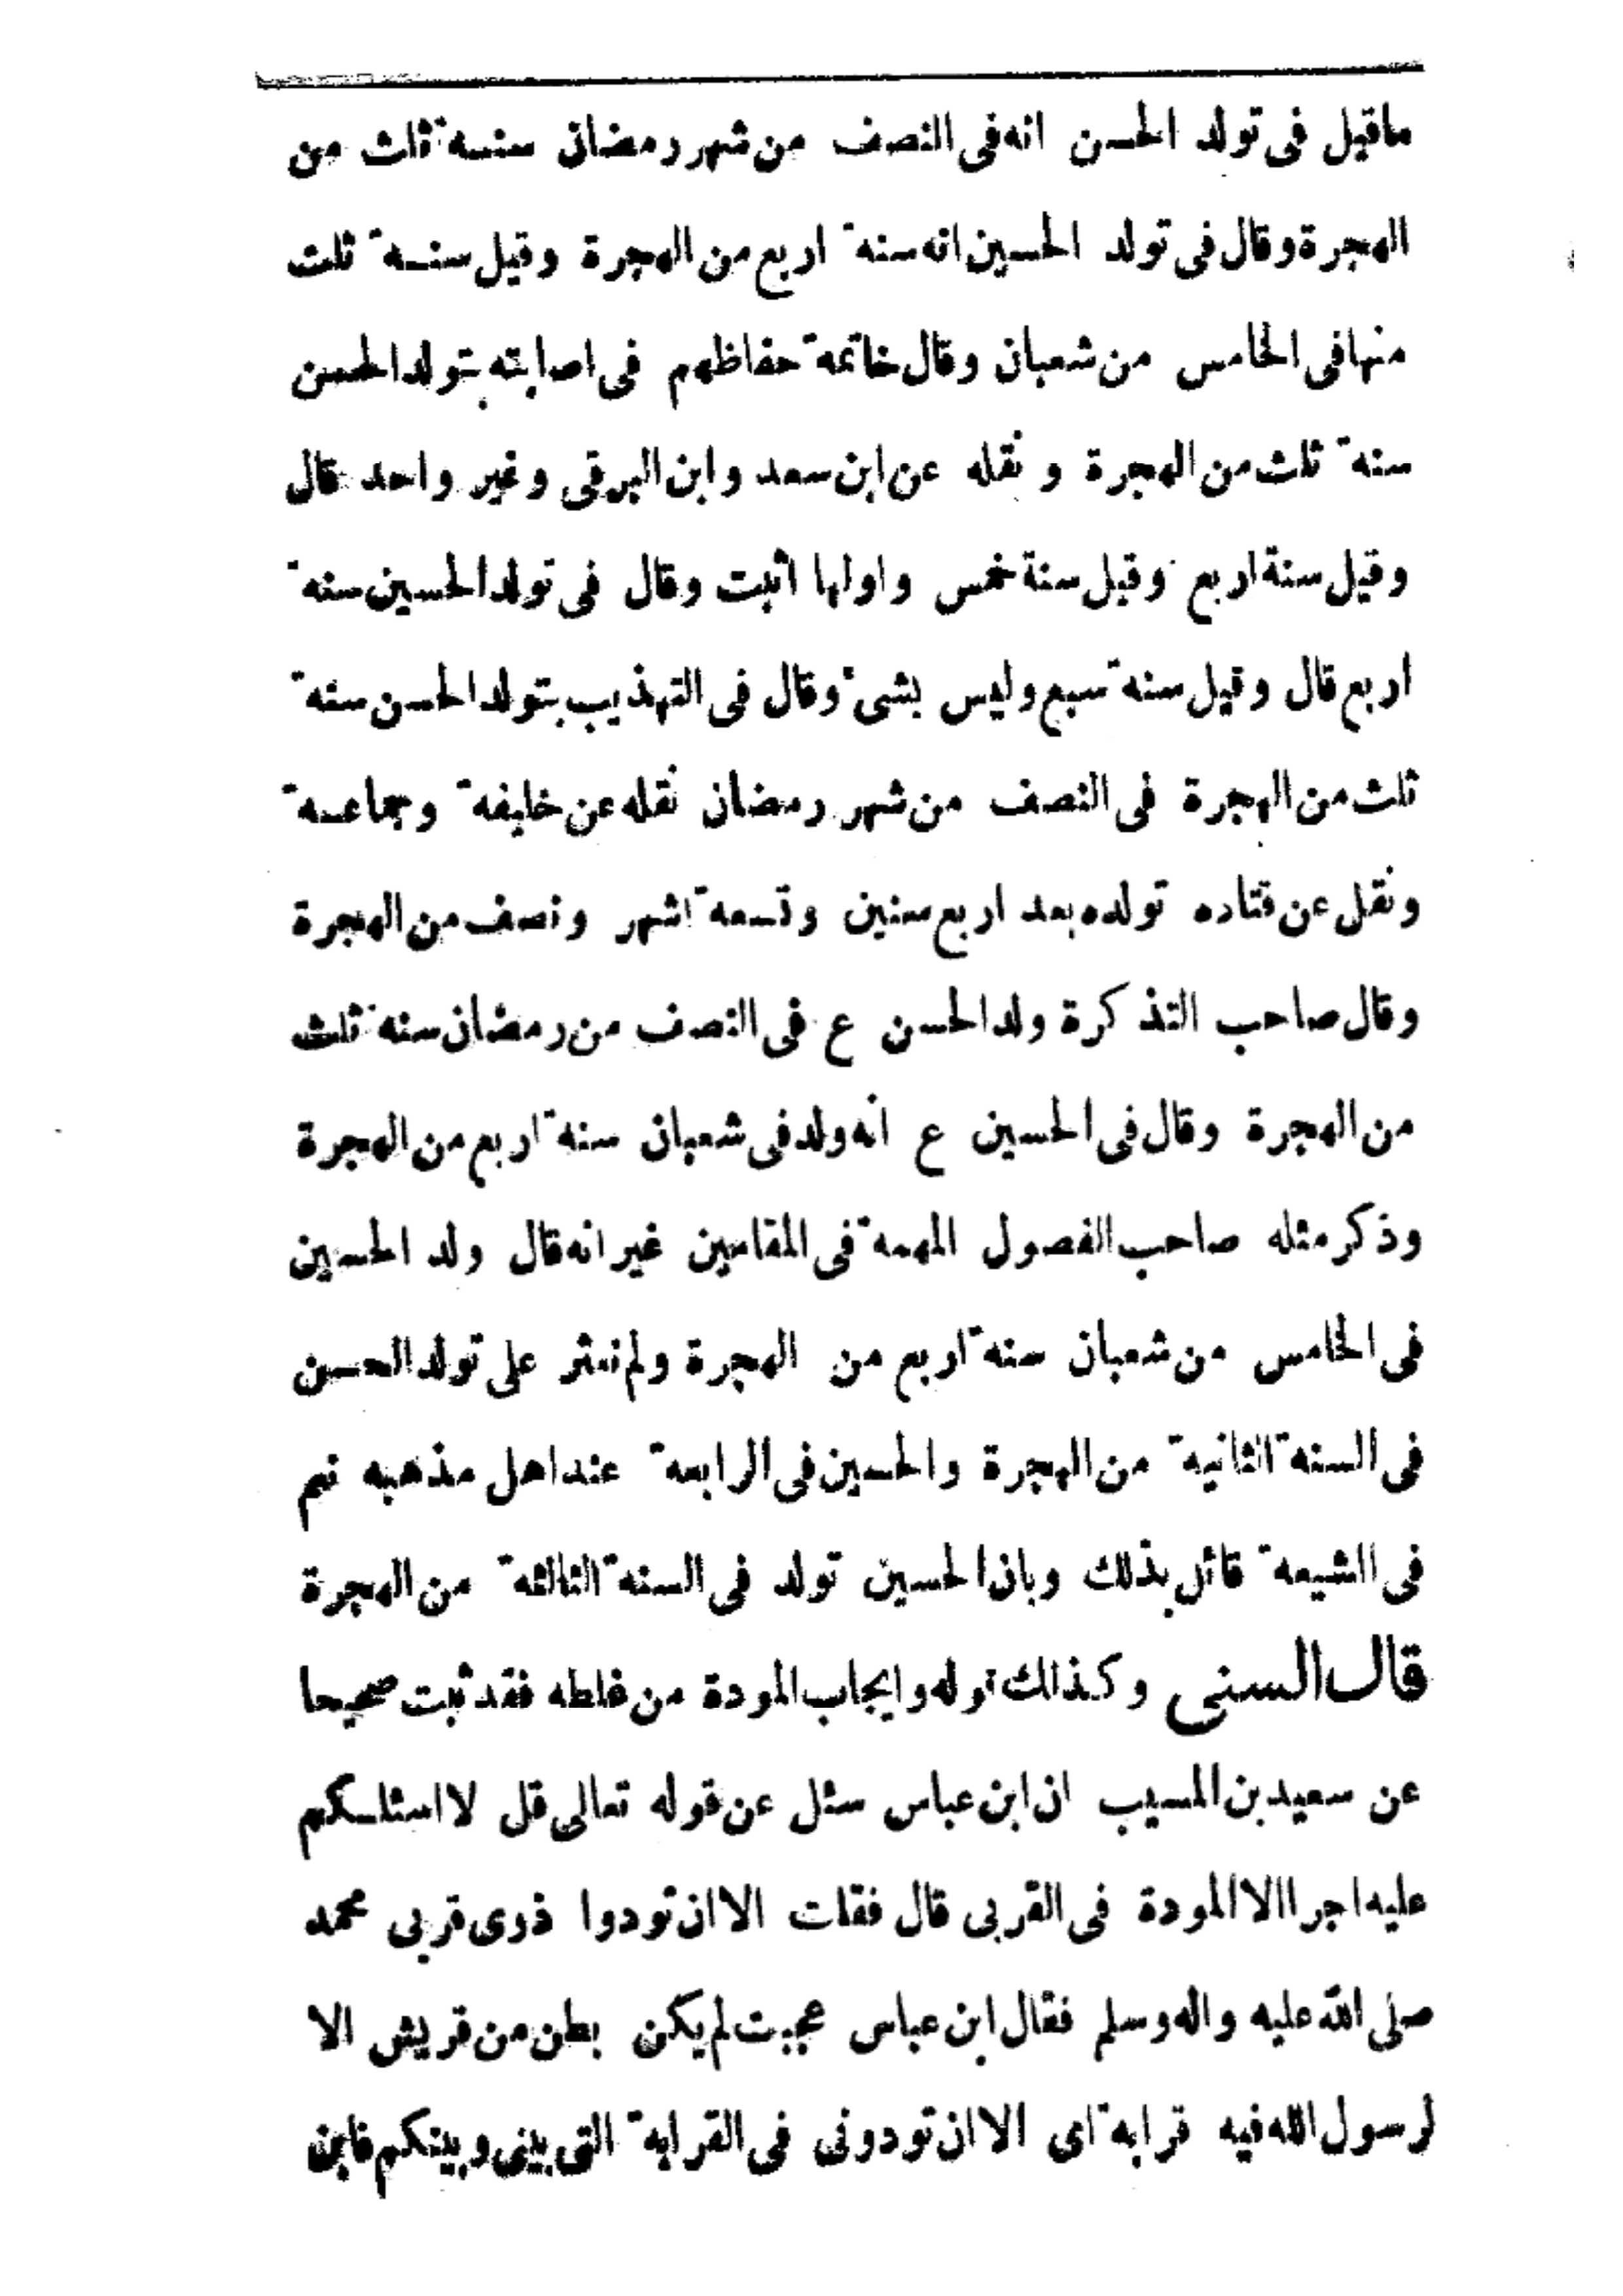 ماقيل فى تولد الحسن انه فى النصف من شهر رمضان سنة ثلث من
الهجرة وقال فى تولد الحسين انه سنة اربع من الهجرة وقيل سنة ثلث
منها فى الخامس من شعبان وقال خاتمة حفاظهم فى اصابته بتولد الحسن
سنة ثلث من الهجرة ونقله عن ابن سعد وابن البرقى وغير واحد قال
وقيل سنة اربع وقيل سنة خمس واولها اثبت وقال فى تولد الحسين سنة
اربع قال وقيل سنة سبع وليس بشىء وقال فى التهذيب بتولد الحسن سنة
ثلث من الهجرة فى النصف من شهر رمضان نقله عن خليفة وجماعة
ونقل عن قتاده تولده بعد اربع سنين وتسعة اشهر ونصف من الهجرة
وقال صاحب التذكرة ولد الحسن ع فى النصف من رمضان سنة ثلث
من الهجرة وقال فى الحسين ع انه ولد فى شعبان سنة اربع من الهجرة
وذكر مثله صاحب الفصول المهمة فى المقامين غير انه قال ولد الحسين
فى الخامس من شعبان سنة اربع من الهجرة ولم نعثر على تولد الحسن
فى السنة الثانية من الهجرة والحسين فى الرابعة عند اهل مذهبه نعم
فى الشيعة قائل بذلك وبان الحسين تولد فى السنة الثالثة من الهجرة
قال السنى وكذالك قوله وايجاب المودة من غلطه فقد ثبت صحيحا
عن سعيد بن المسيب ان ابن عباس سئل عن قوله تعالى قل لا اسئلكم
عليه اجرا الا المودة فى القربى قال فقلت الا ان تودوا ذوى قربى محمد
صلى الله عليه واله وسلم فقال ابن عباس عجبت لم يكن بطن من قريش الا
لرسول الله فيه قرابة اى الا ان تودونى فى القرابة التى بينى وبينكم فابن